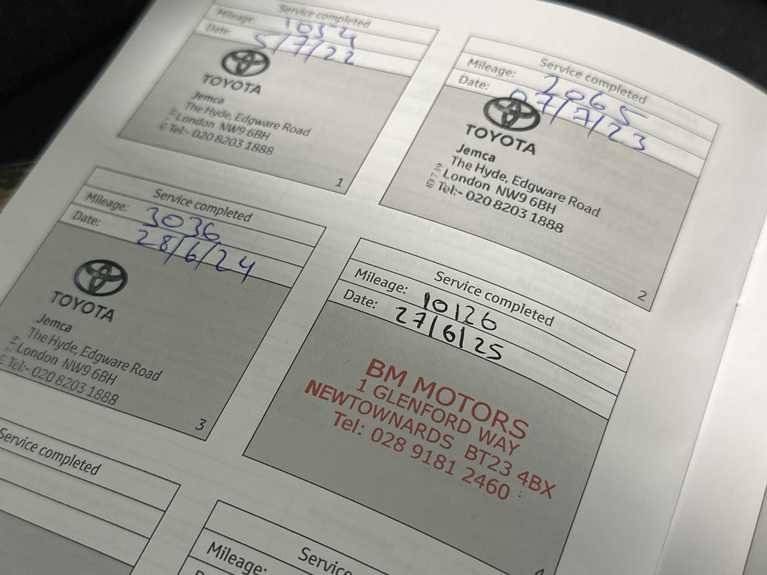 Service completed
Mileage: 1034
Date: 5/7/22
TOYOTA
Jemca
The Hyde, Edgware Road
London NW9 6BH
Tel:- 020 8203 1888
1
Service completed
Mileage: 2065
Date: 07/7/23
TOYOTA
Jemca
The Hyde, Edgware Road
London NW9 6BH
Tel:- 020 8203 1888
2
Service completed
Mileage: 3036
Date: 28/6/24
TOYOTA
Jemca
The Hyde, Edgware Road
London NW9 6BH
Tel:- 020 8203 1888
3
Service completed
Mileage: 10126
Date: 27/6/25
BM MOTORS
1 GLENFORD WAY
NEWTOWNARDS BT23 4BX
Tel: 028 9181 2460
Service completed
Mileage: